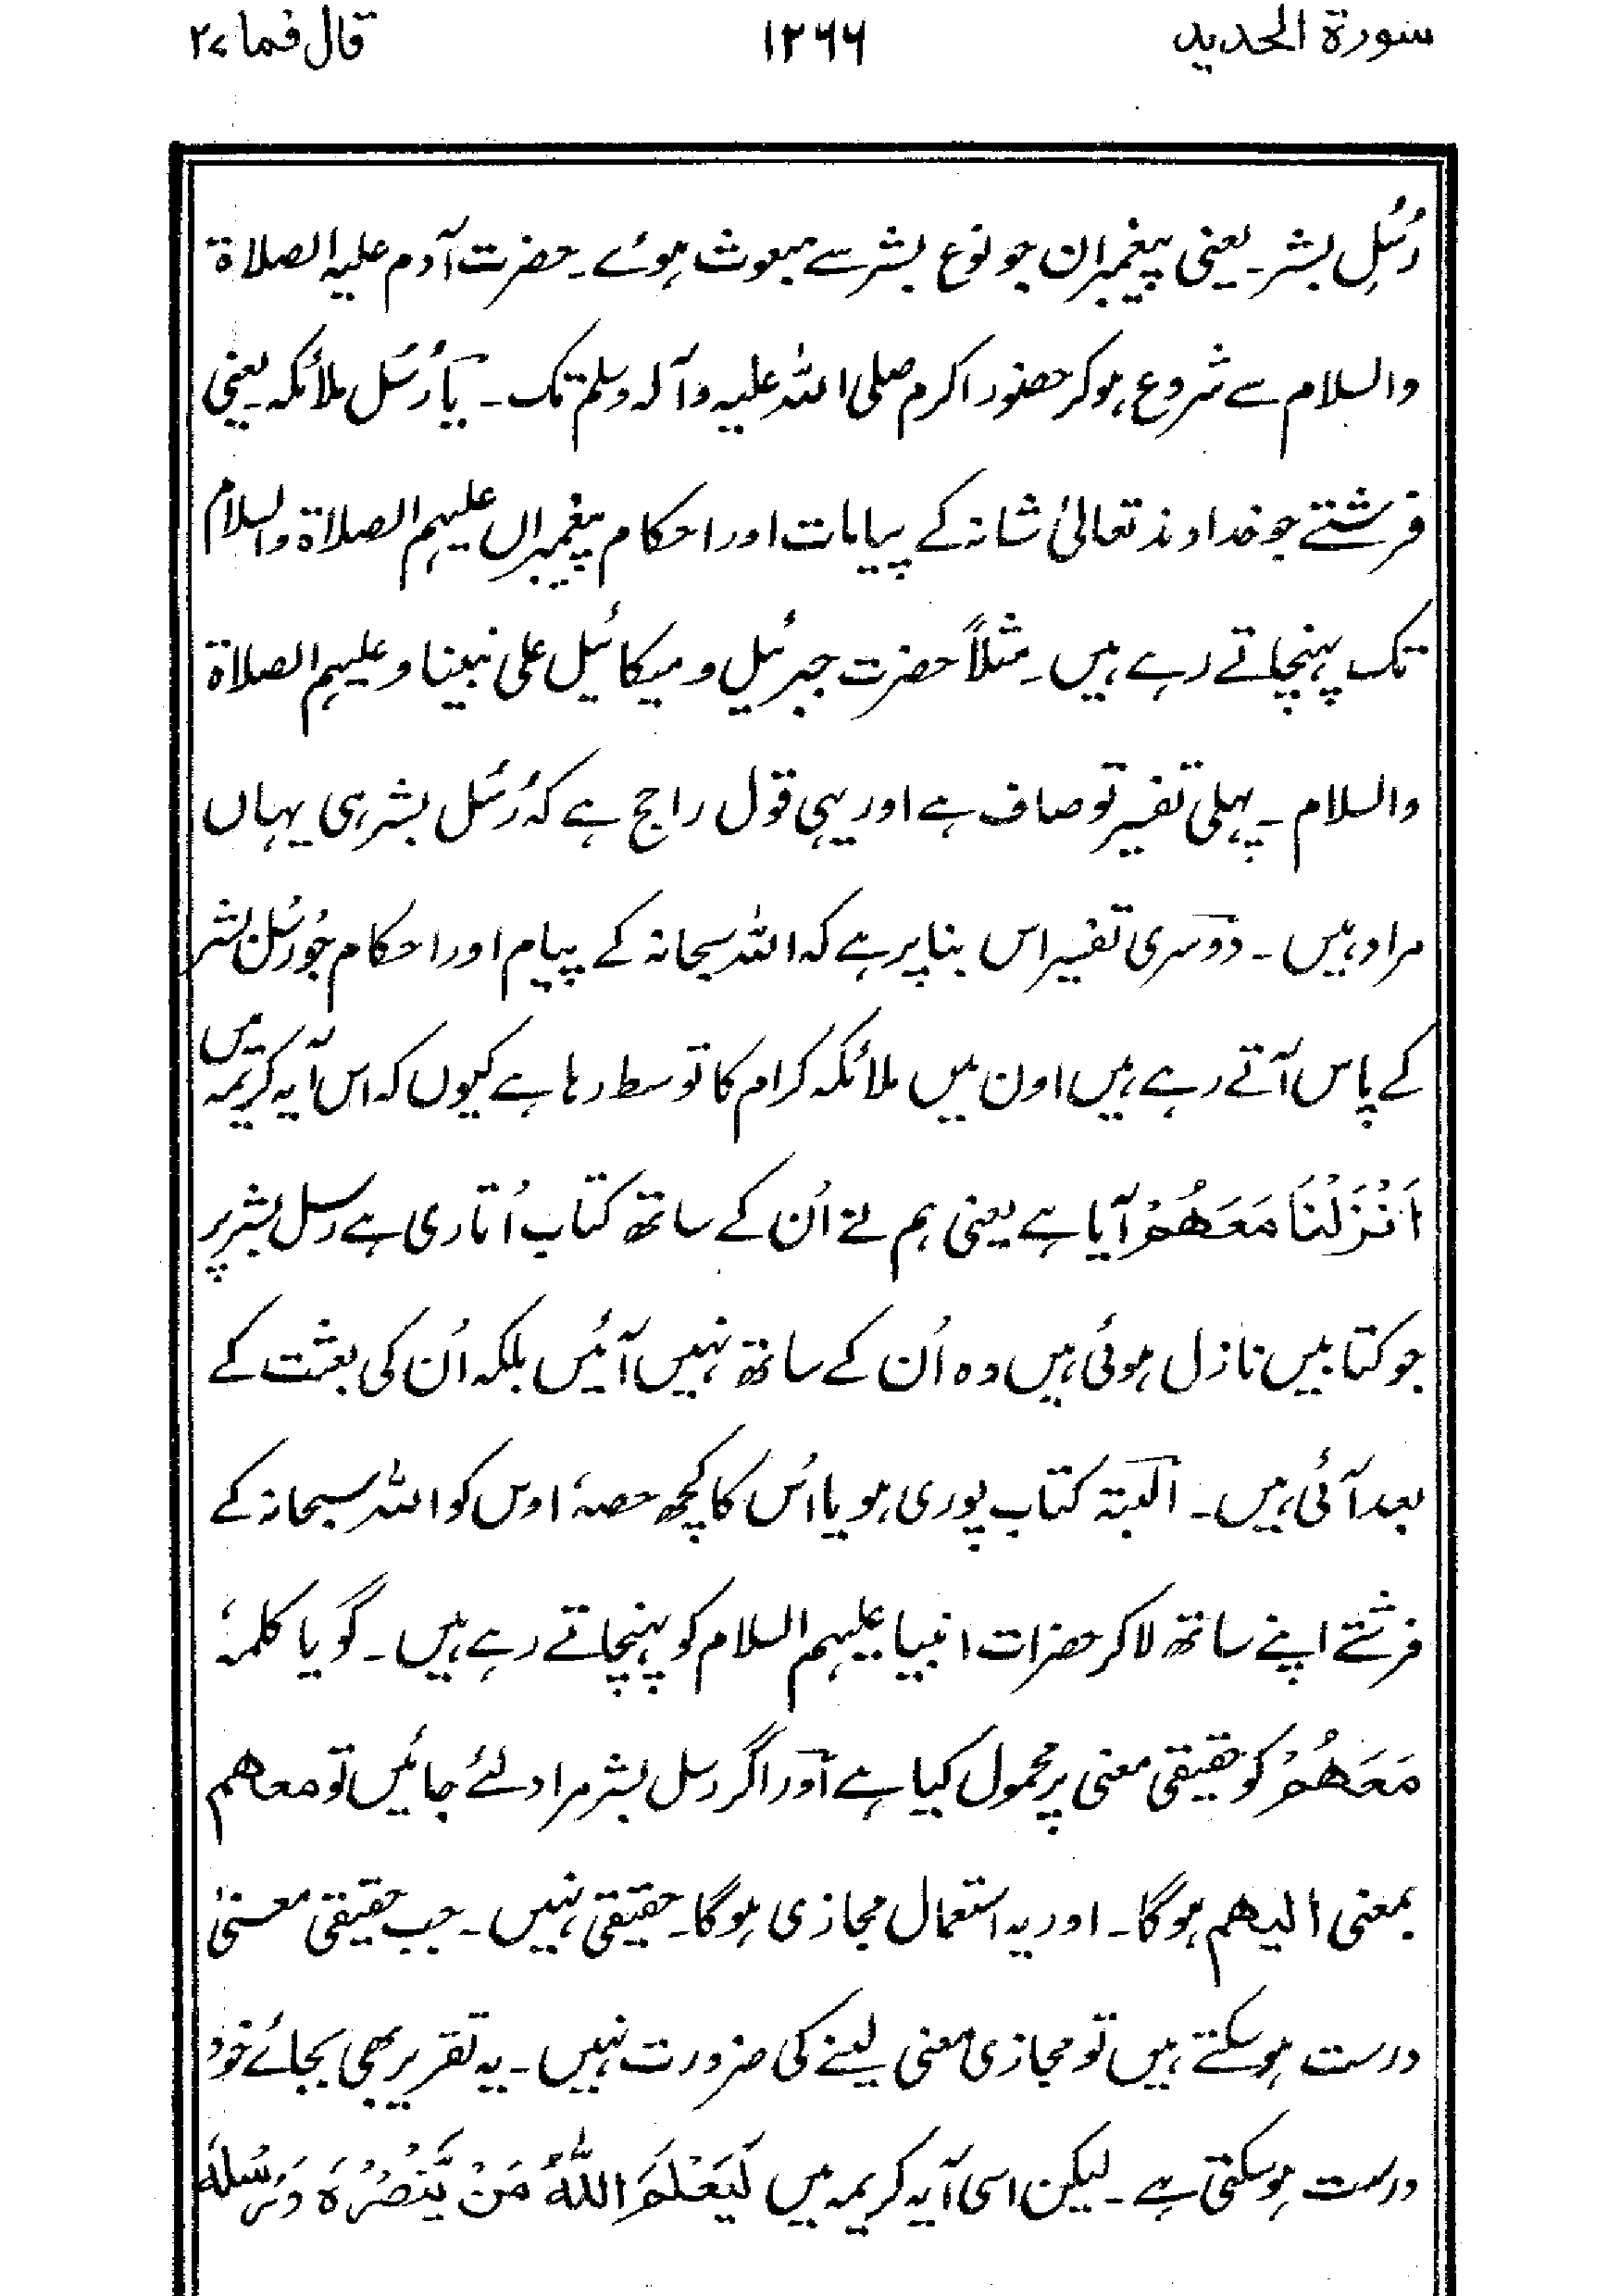 سورۃ الحدید ۱۲۶۶ قال فما ۲۷
رُسُلِ بشر۔ یعنی پیغمبران جو نوع بشر سے مبعوث ہوئے۔ حضرت آدم علیہ الصلاۃ
والسلام سے شروع ہوکر حضور اکرم صلی اللہ علیہ وآلہ وسلم تک۔ یا رُسُل ملائکہ یعنی
فرشتے جو خداوند تعالیٰ شانہ کے پیامات اور احکام پیغمبراں علیہم الصلاۃ والسلام
تک پہنچاتے رہے ہیں۔ مثلاً حضرت جبرئیل و میکائیل علی نبینا وعلیہم الصلاۃ
والسلام۔ پہلی تفسیر تو صاف ہے اور یہی قول راجح ہے کہ رُسُل بشر ہی یہاں
مراد ہیں۔ دوسری تفسیر اس بنا پر ہے کہ اللہ سبحانہ کے پیام اور احکام جو رُسُل بشر
کے پاس آتے رہے ہیں اون میں ملائکہ کرام کا توسط رہا ہے کیوں کہ اس آیہ کریمہ میں
اَنْزَلْنَا مَعَهُمْ آیا ہے یعنی ہم نے اُن کے ساتھ کتاب اُتاری ہے رسل بشر پر
جو کتابیں نازل ہوئی ہیں وہ اُن کے ساتھ نہیں آئیں بلکہ اُن کی بعثت کے
بعد آئی ہیں۔ البتہ کتاب پوری ہو یا اُس کا کچھ حصہ، اوس کو اللہ سبحانہ کے
فرشتے اپنے ساتھ لاکر حضرات انبیا علیہم السلام کو پہنچاتے رہے ہیں۔ گویا کلمۂ
مَعَهُمْ کو حقیقی معنی پر محمول کیا ہے اور اگر رسل بشر مراد لئے جائیں تو معهم
بمعنی الیهم ہوگا۔ اور یہ استعمال مجازی ہوگا۔ حقیقی نہیں۔ جب حقیقی معنیٰ
درست ہوسکتے ہیں تو مجازی معنی لینے کی ضرورت نہیں۔ یہ تقریر بھی بجائے خود
درست ہوسکتی ہے۔ لیکن اسی آیہ کریمہ میں لِیَعْلَمَ اللّٰهُ مَنْ یَّنْصُرُهٗ وَرُسُلَهٗ